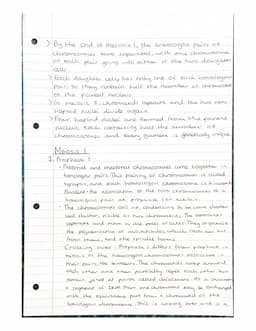 > By the end of meiosis 1, the homologous pairs of
chromosomes have separated, with one chromosome
of each pair going into either of the two daughter
cells.
> Each daughter cell has only one of each homologous
pair, so they contain half the number of chromosomes
of the parent nucleus.
> In meiosis 2, chromatids separate and the two new
haploid nuclei divide again.
> Four haploid nuclei are formed from the parent
nucleus, each containing half the number of
chromosomes and being genetically unique
Meiosis 1
1. Prophase 1
• Maternal and paternal chromosomes come together in
homologous pairs. This pairing of chromosomes is called
synapsis, and each homologous chromosome is known
the association of the two chromosomes
homologous pair at prophase 1 of meiosis.
• The chromosomes coil up, condensing to become shorter
and thicker, visible as two chromatids. The centrioles
separate and move to the poles of cells. They organise the
polymerisation of microtubules, which radiate out
from them, and the spindle forms.
• Crossing over: Prophase 1 differs from prophase in
mitosis as the homologous chromosomes associate in
their pairs, the bivalents. The chromatids wrap around
each other and then partially repel each other but
remain joined at points called chiasmata. At a chiasma
a segment of DNA from one chromatid may be exchanged
with the equivalent part from a chromatid of the
homologous chromosome. This is crossing over and is a